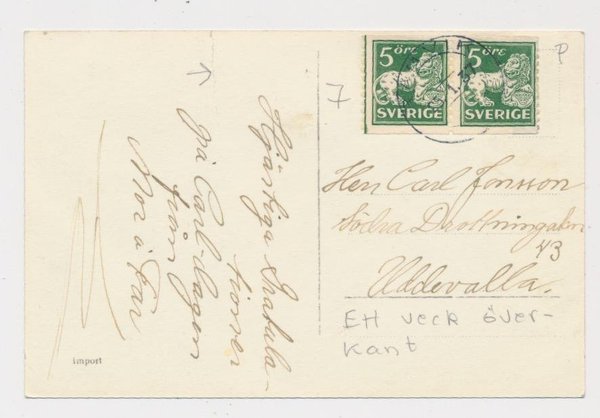 Hjärtliga Gratula-
tioner
på Carl-dagen
från
Mor å Far
import
7
5 ÖRE
SVERIGE
5 ÖRE
SVERIGE
P
Herr Carl Jonsson
Södra Drottningatan
43
Uddevalla.
Ett veck över-
kant